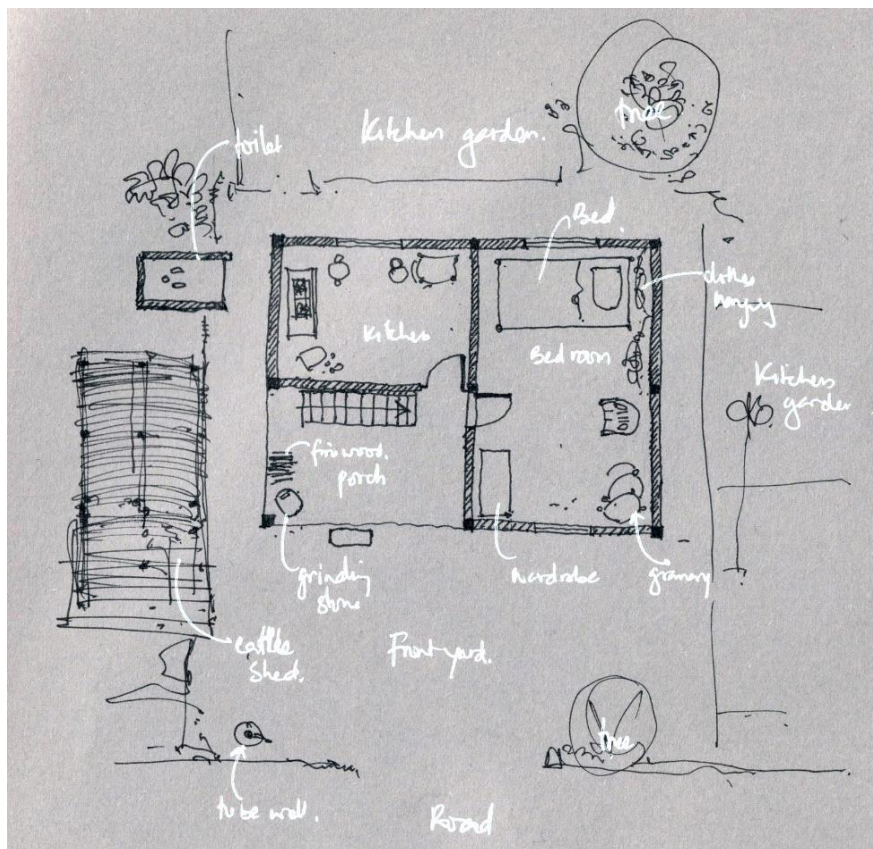 tree
Kitchen garden.
toilet
Bed.
clothes
hanging
Kitchen
Bedroom
Kitchen
garden
firewood.
porch
grinding
stone
wardrobe
granary
cattle
shed.
Front yard.
tree
tube well.
Road